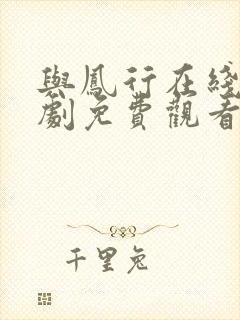 與鳳行在綫
劇免費觀看
千里兔